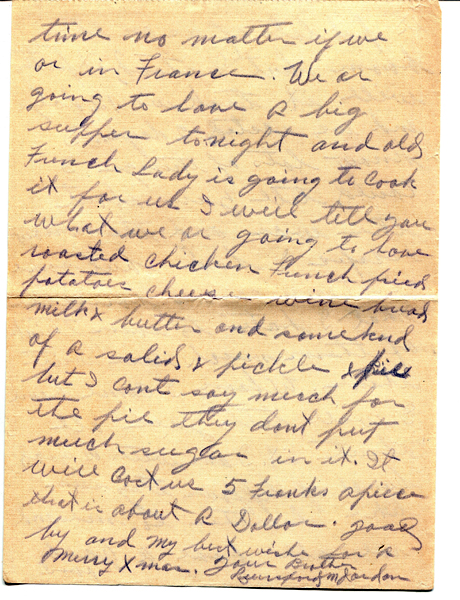 time no matter if we
or in France. We ar
going to have a big
supper tonight and old
French Lady is going to cook
it for us I will tell you
what we ar going to have
roasted chicken French fried
potatoes cheese wine bread
milk & butter and some knd
of a salid & pickle & pie
but I cant say much for
the pie they dont put
much sugar in it. It
will cost us 5 Franks apiece
that is about a Dollar. good
by and my best wishe for a
Merry Xmas. Your Brother
M Jordan